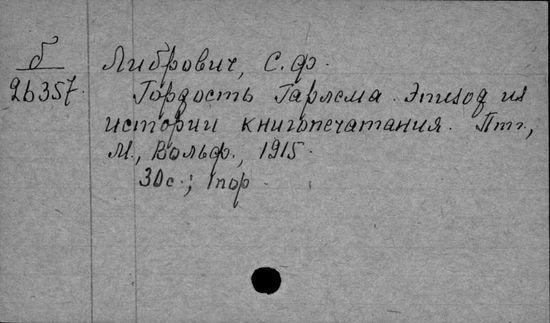 б
26357.
Либрович, С.Ф.
Гордость Гарлема. Эпизод из
истории книгопечатания. Птг.,
М., Вольф., 1915.
30с.; 1пор.